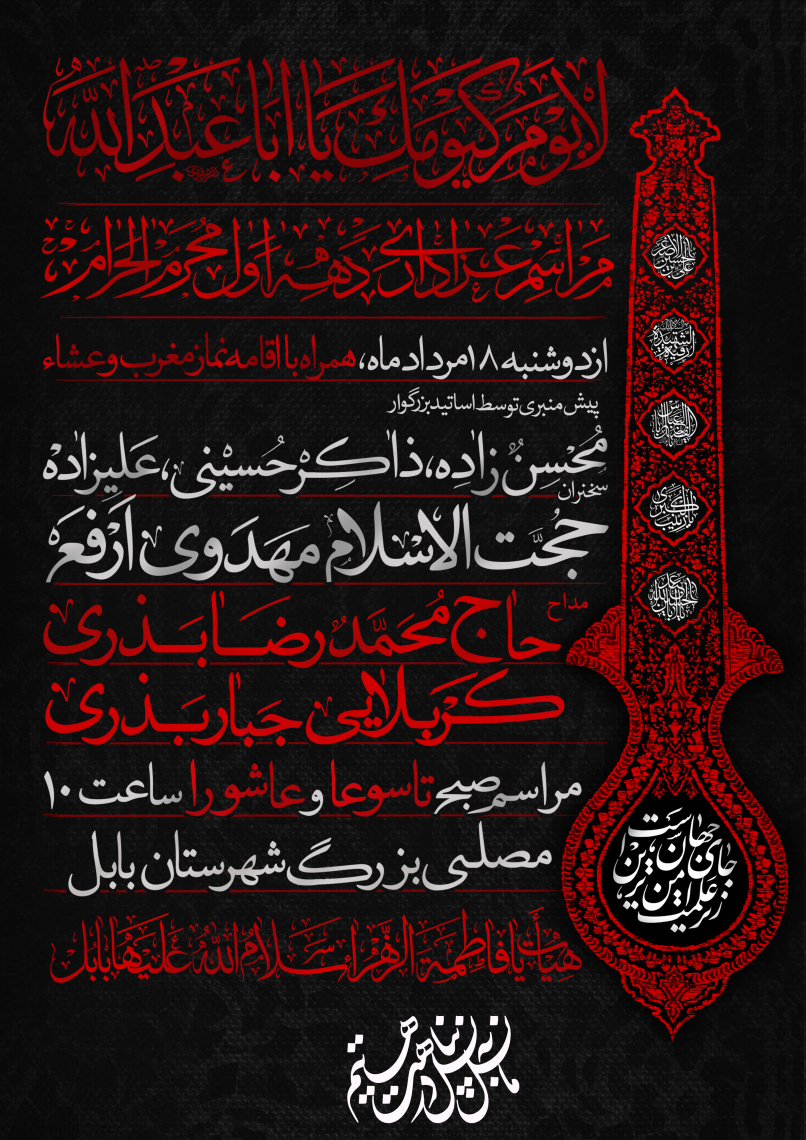 لا یوم کیومك یا اباعبدالله
مراسم عزاداری دهه اول محرم الحرام
از دوشنبه ۱۸ مرداد ماه، همراه با اقامه نماز مغرب و عشاء
پیش منبری توسط اساتید بزرگوار
مُحسِن زاده، ذاکِر حُسینی، عَلیزاده
سخنران
حجت الاسلام مهدوی ارفع
مداح
حاج مُحمّد رضا بذری
کربلایی جبار بذری
مراسم صبح تاسوعا و عاشورا ساعت ۱۰
مصلی بزرگ شهرستان بابل
هیأت یا فاطمة الزهرا سلام الله علیها بابل
زیر علمت امن ترین جای جهان است